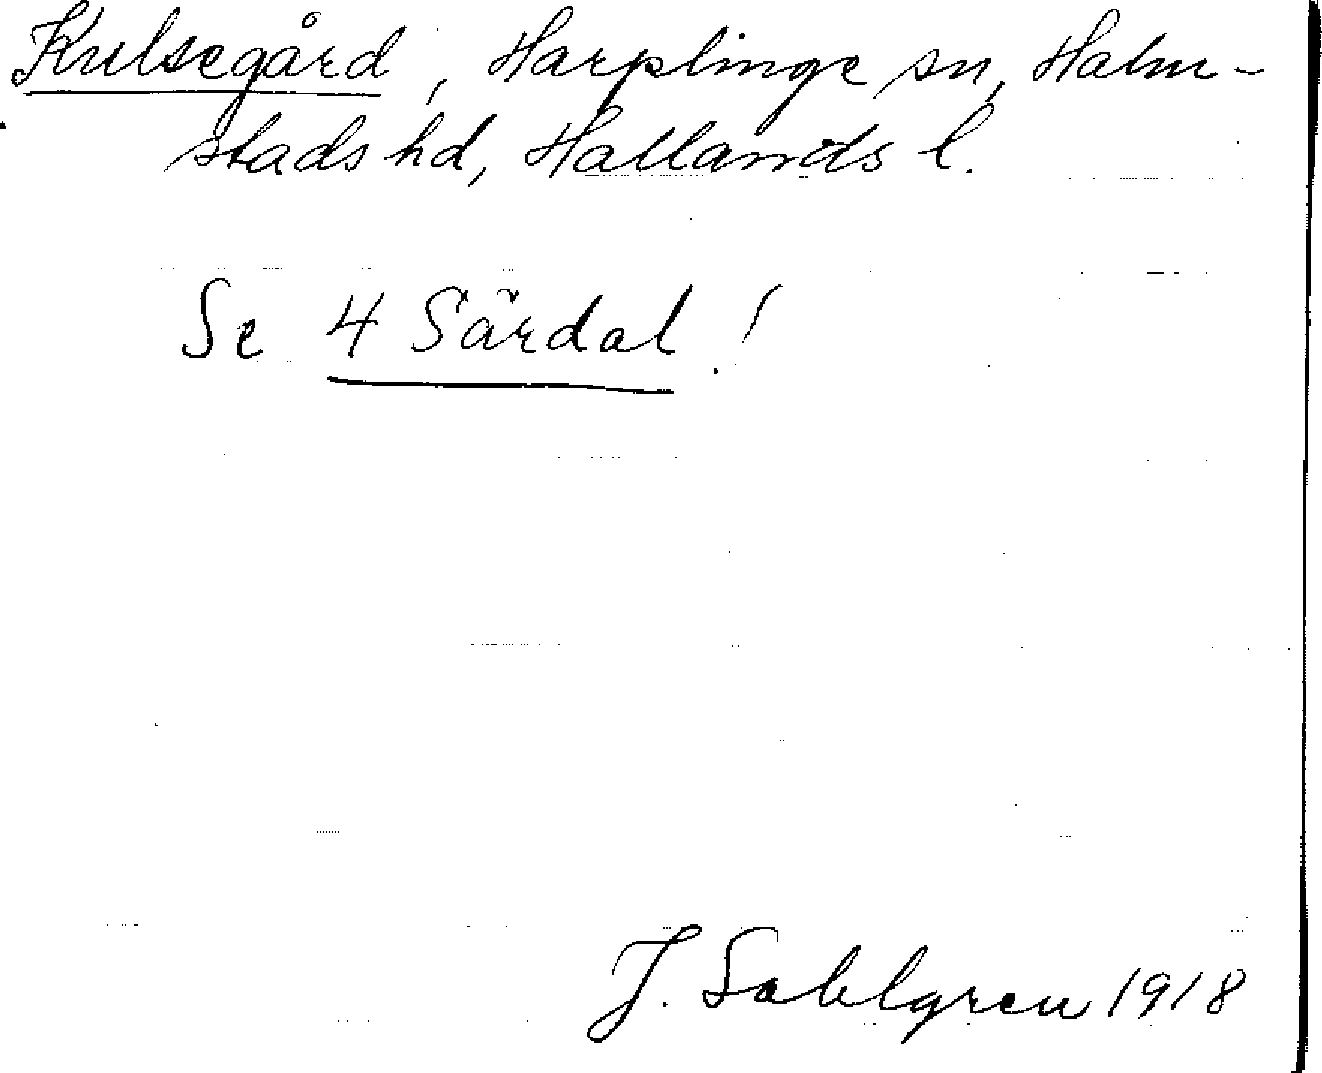 Kulsegård, Harplinge sn, Halm-
stads hd, Hallands l.
Se 4 Särdal!
J. Sahlgren 1918